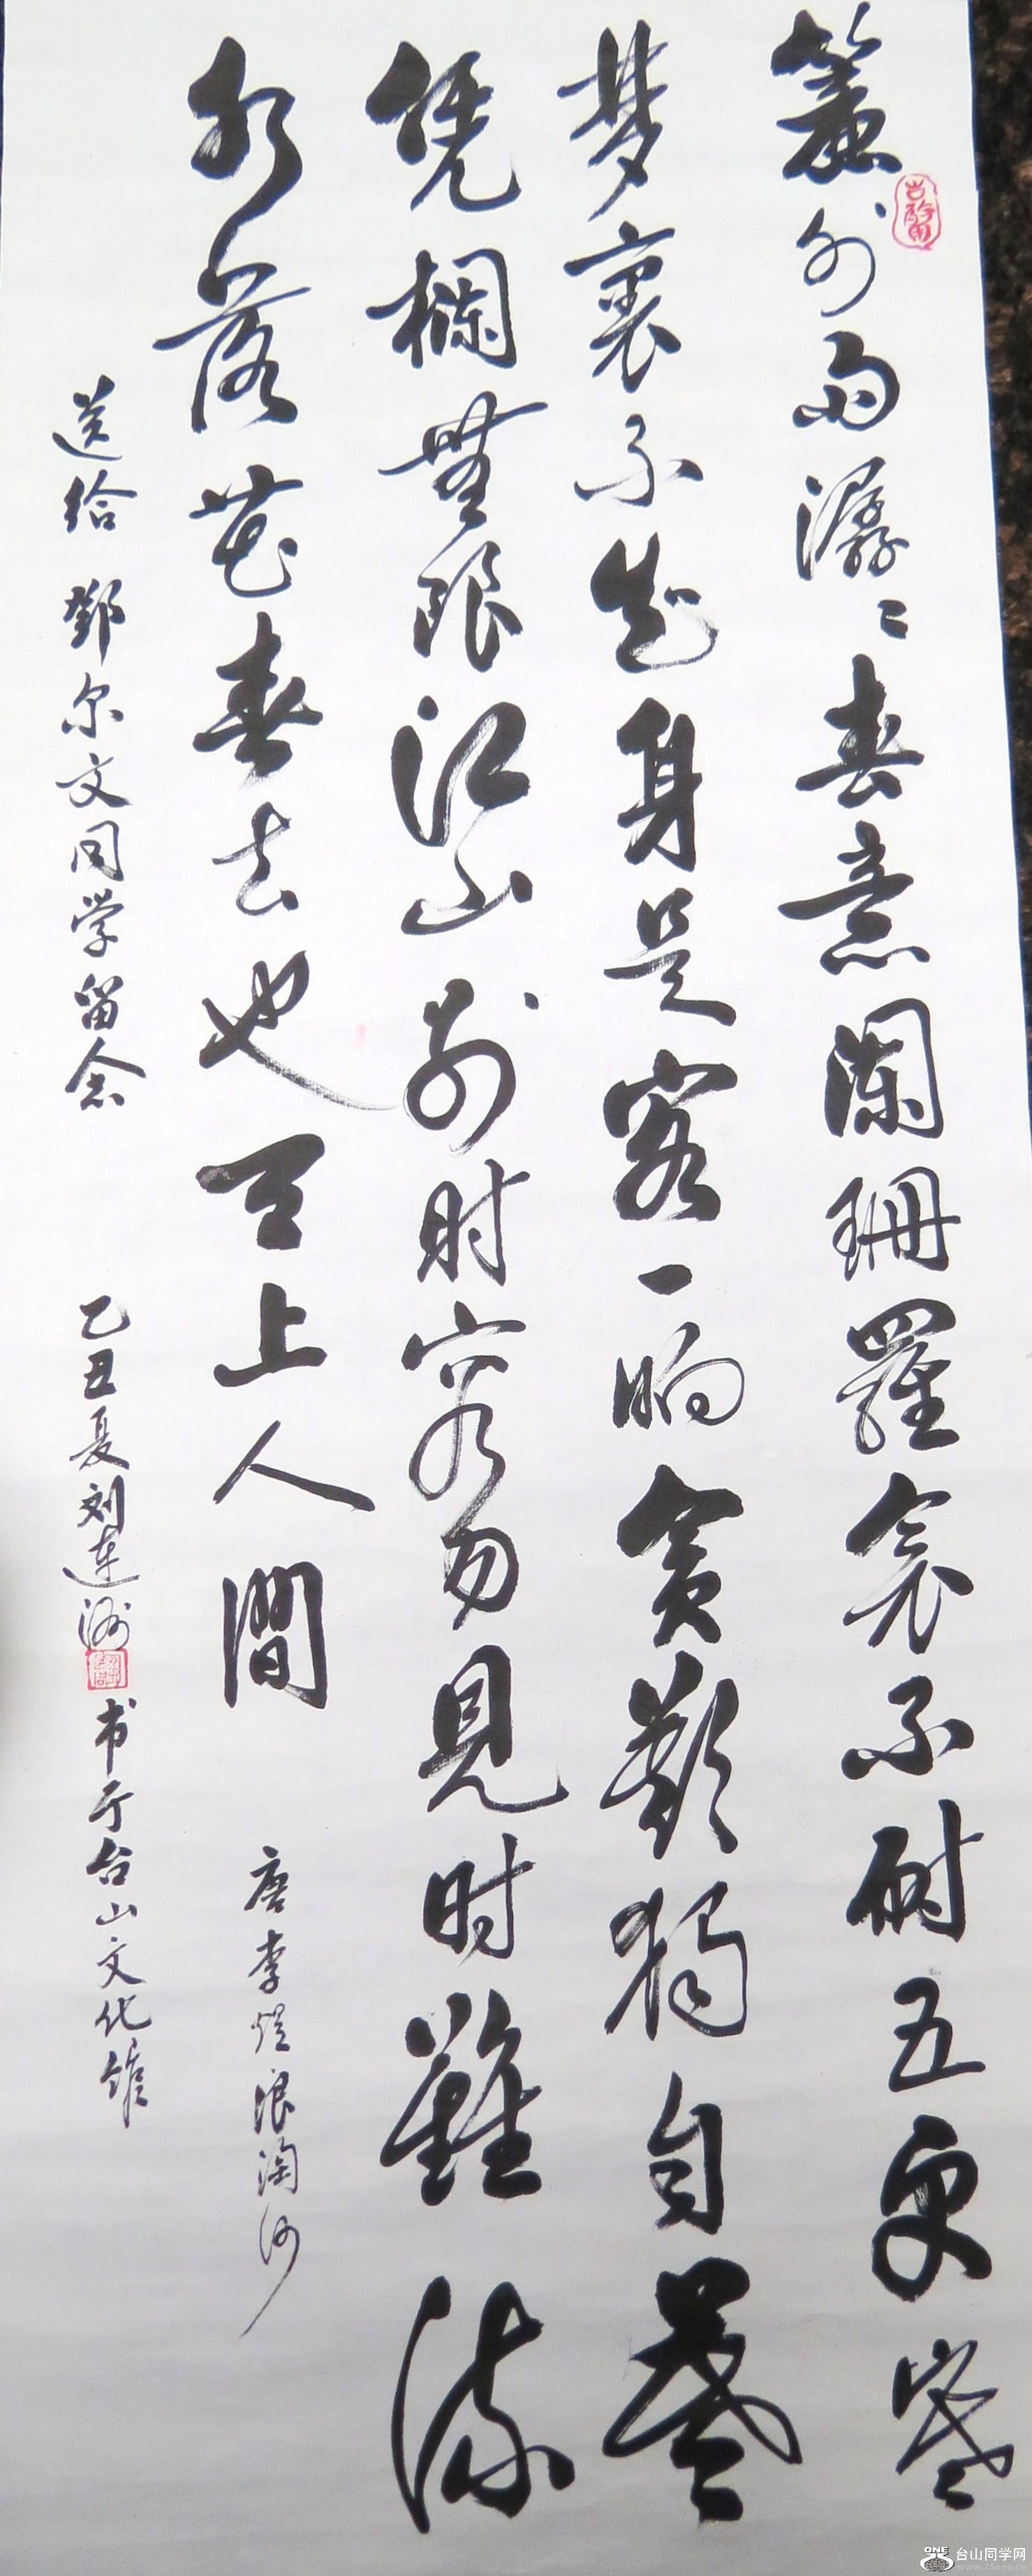 簾外雨潺〻春意闌珊羅衾不耐五更寒
梦裏不知身是客一晌貪歡獨自莫
凭欄無限江山别时容易見时難流
水落花春去也天上人間
唐李煜浪淘沙
送给鄧尔文同学留念
乙丑夏刘连洲
书于台山文化館
ONE
台山同学网